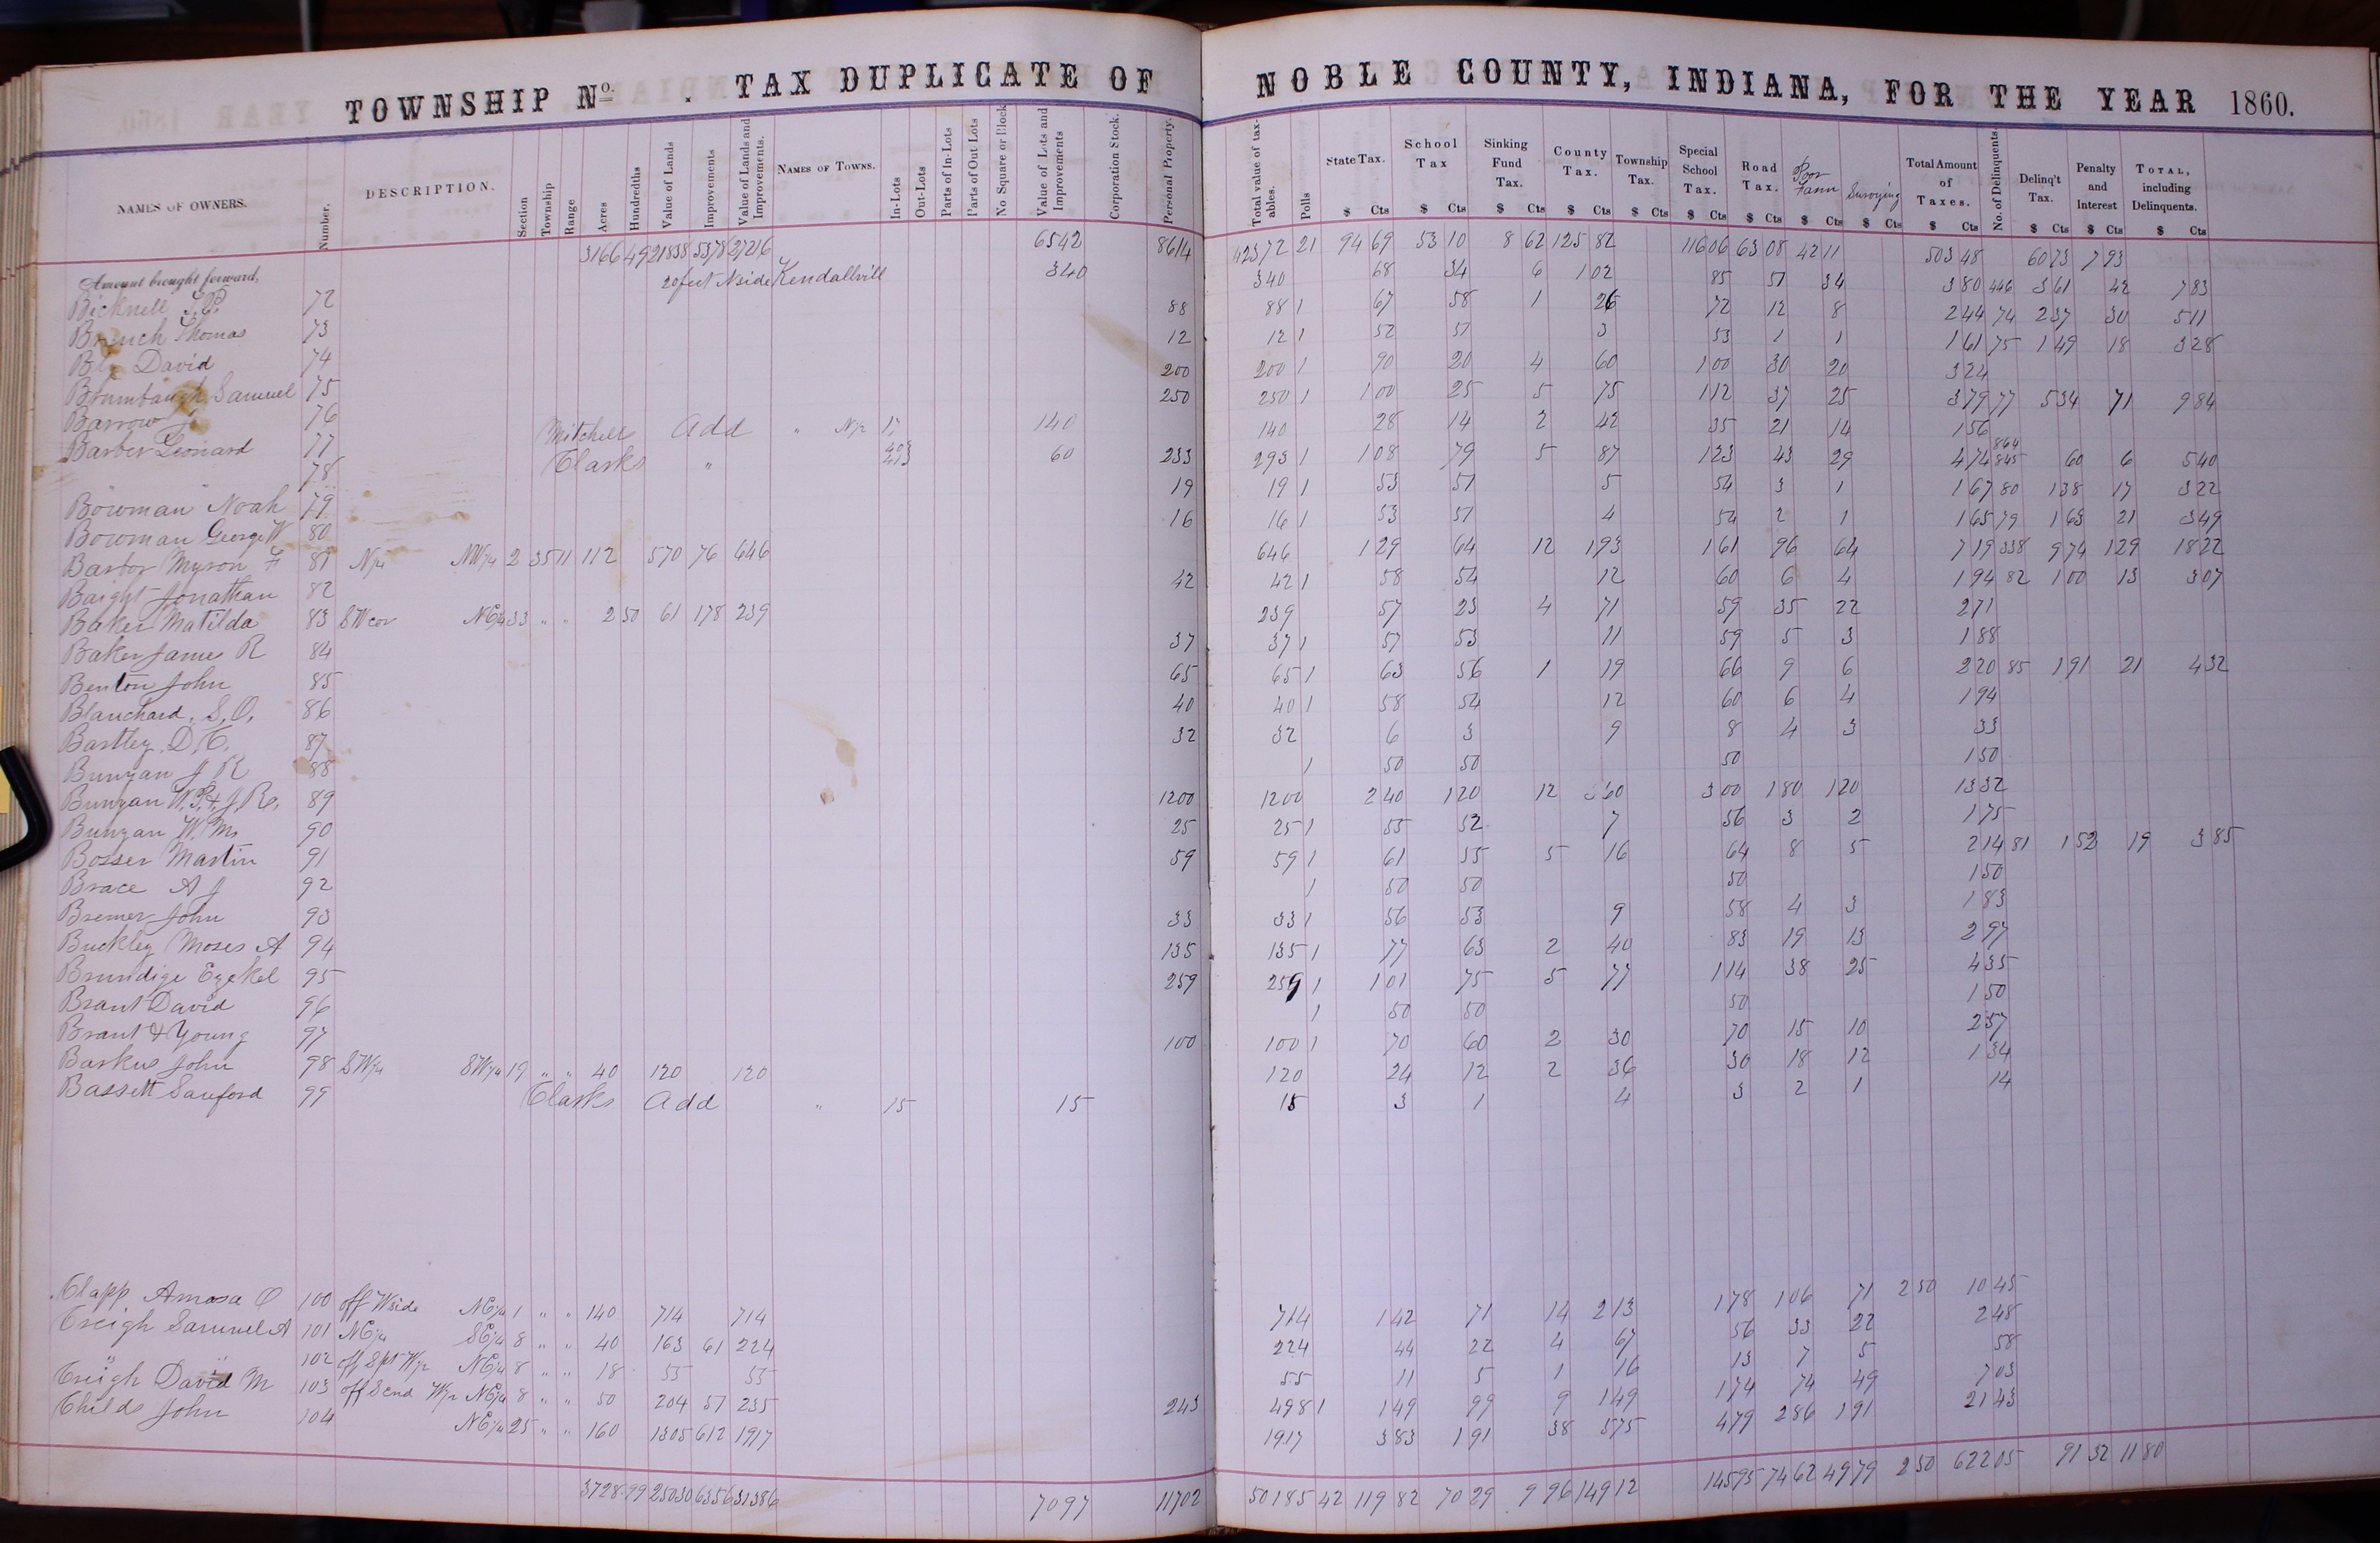 TOWNSHIP No. . TAX DUPLICATE OF NOBLE COUNTY, INDIANA, FOR THE YEAR 1860.
NAMES OF OWNERS. Number. DESCRIPTION. Section Township Range Acres Hundredths Value of Lands Improvements Value of Lands and Improvements. NAMES OF TOWNS. In-Lots Out-Lots Parts of In-Lots Parts of Out Lots No Square or Block Value of Lots and Improvements Corporation Stock. Personal Property. Total value of taxables. Polls State Tax. School Tax Sinking Fund Tax. County Tax. Township Tax. Special School Tax. Road Tax. Poor Farm Surveying Total Amount of Taxes. No. of Delinquents. Delinq't Tax. Penalty and Interest TOTAL, including Delinquents.
$ Cts $ Cts $ Cts $ Cts $ Cts $ Cts $ Cts $ Cts $ Cts $ Cts $ Cts $ Cts $ Cts
Amount brought forward, 3166 49 21838 5378 27216 6542 8614 42372 21 94 69 53 10 8 62 125 82 116 06 63 08 42 11 503 48 60 73 7 93
Bicknell 72 20 feet N side Kendallvill 340 340 68 34 6 1 02 85 51 34 3 80 446 3 61 42 7 83
Thomas 73 88 88 1 67 58 1 26 72 12 8 2 44 74 2 37 30 5 11
David 74 12 12 1 52 51 3 53 1 1 1 61 75 1 49 18 3 28
Brumbaugh Samuel 75 200 200 1 90 20 4 60 1 00 30 20 3 24
Barrow J 76 250 250 1 1 00 25 5 75 1 12 37 25 3 79 77 5 34 71 9 84
Barber Leonard 77 Mitchells Add " N½ 17 140 140 28 14 2 42 35 21 14 1 56
" " 78 Clarks " 60 233 293 1 1 08 79 5 87 1 23 43 29 4 74 864 845 60 6 5 40
Bowman Noah 79 19 19 1 53 51 5 54 3 1 1 67 80 1 38 17 3 22
Bowman George W 80 16 16 1 53 51 4 54 2 1 1 65 79 1 63 21 3 49
Myron F 81 N½ NW¼ 2 35 11 112 570 76 646 646 1 29 64 12 1 93 1 61 96 64 7 19 338 9 74 1 29 18 22
Baight Jonathan 82 42 42 1 58 54 12 60 6 4 1 94 82 1 00 13 3 07
Baker Matilda 83 SW cor NE¼ 33 " " 2 50 61 178 239 239 57 23 4 71 59 35 22 2 71
Baker James R 84 37 37 1 57 53 11 59 5 3 1 88
Benton John 85 65 65 1 63 56 1 19 66 9 6 2 20 85 1 91 21 4 32
Blanchard, S. O. 86 40 40 1 58 54 12 60 6 4 1 94
Bartley D. C. 87 32 32 6 3 9 8 4 3 33
Bunyan J R 88 1 50 50 50 1 50
Bunyan W. P. & J. R. 89 1200 1200 2 40 1 20 12 3 60 3 00 1 80 1 20 13 32
Bunyan Wm 90 25 25 1 55 52 7 56 3 2 1 75
Bosser Martin 91 59 59 1 61 55 5 16 64 8 5 2 14 81 1 52 19 3 85
Brace A J 92 1 50 50 50 1 50
Bremer John 93 33 33 1 56 53 9 58 4 3 1 83
Buckley Moses A 94 135 135 1 77 63 2 40 83 19 13 2 97
Brundige Ezekel 95 259 259 1 1 01 75 5 77 1 14 38 25 4 35
Brant David 96 1 50 50 50 1 50
Brant & Young 97 100 100 1 70 60 2 30 70 15 10 2 57
Barkus John 98 SW¼ SW¼ 19 " " 40 120 120 120 24 12 2 36 30 18 12 1 34
Bassett Sanford 99 Clarks Add " 15 15 15 3 1 4 3 2 1 14
Clapp Amasa O 100 off W side NE¼ 1 " " 140 714 714 714 1 42 71 14 2 13 1 78 1 06 71 2 50 10 45
Creigh Samuel A 101 NE¼ SE¼ 8 " " 40 163 61 224 224 44 22 4 67 56 33 22 2 48
" " 102 off S pt W½ NE¼ 8 " " 18 55 55 55 11 5 1 16 13 7 5 58
Creigh David M 103 off S end W½ NE¼ 8 " " 50 204 51 255 243 498 1 1 49 99 9 1 49 1 74 74 49 7 03
Childs John 104 NE¼ 25 " " 160 1305 612 1917 1917 3 83 1 91 38 5 75 4 79 2 86 1 91 21 43
3728 99 25030 6356 31386 7097 11702 50185 42 119 82 70 29 9 96 149 12 145 95 74 62 49 79 2 50 622 05 91 32 11 80